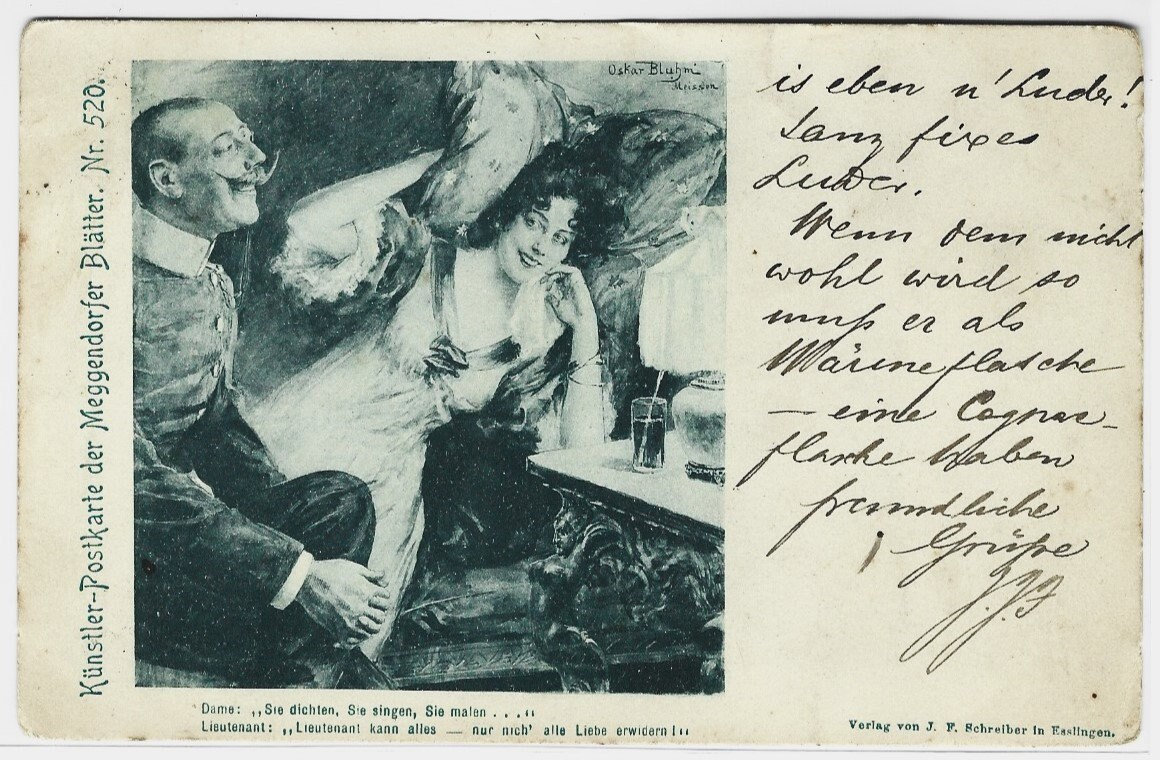 Künstler-Postkarte der Meggendorfer Blätter. Nr. 520.
Oskar Bluhm
Meissen
is eben n' Luder!
Janz fixes
Luder.
Wenn dem nicht
wohl wird so
muß er als
Wärmeflasche
— eine Cognac-
flasche haben
freundliche
Grüße
Dame: „Sie dichten, Sie singen, Sie malen . . .“
Lieutenant: „Lieutenant kann alles — nur nich' alle Liebe erwidern!“
Verlag von J. F. Schreiber in Esslingen.